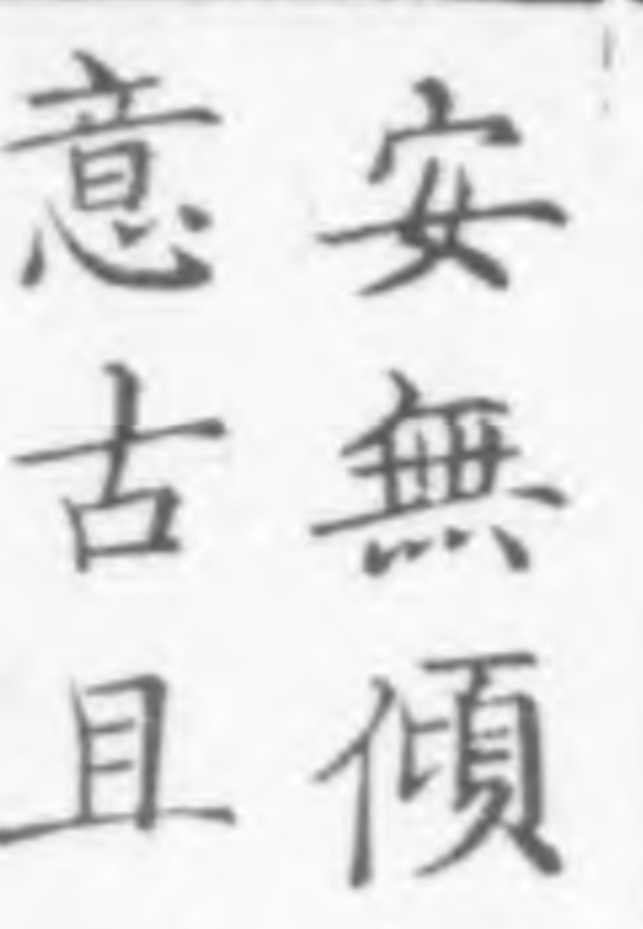 安無傾
意古且